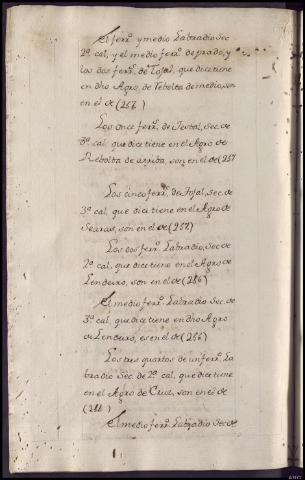 El ferr.º y medio Labradio Sec.
2ª cal, y el medio ferr.º de prado, y
los dos ferr.º de Tojal, que dice tiene
en dho Agro, de Rebolta de medio, son
en el de (257)
Los once ferr.º de Tojal, Sec. de
3ª cal, que dice tiene en el Agro de
Rebolta de arriba, son en el de (257
Los cinco ferr.º de Tojal, Sec. de
3ª cal, que dice tiene en el Agro de
Searas, son en el de (257)
Los dos ferr.º Labradio, Sec. de
2ª cal, que dice tiene en el Agro de
Lendeiro, son en el de (256)
El medio ferr.º Labradio Sec. de
3ª cal, que dice tiene en dho Agro
de Lendeiro, es en el de (256)
Los tres quartos de un ferr.º La
bradio Sec. de 2ª cal, que dice tiene
en el Agro de Cruz, son en el de
El medio ferr.º Labradio Sec. de